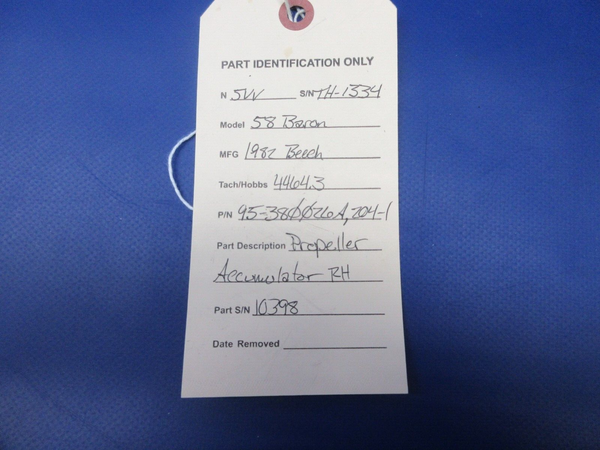 PART IDENTIFICATION ONLY
N 5VV S/N TH-1334
Model 58 Baron
MFG 1982 Beech
Tach/Hobbs 4464.3
P/N 95-380026A, 204-1
Part Description Propeller
Accumulator RH
Part S/N 10398
Date Removed